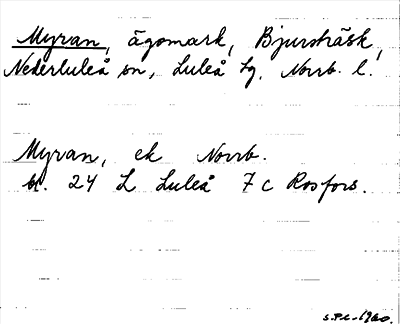 Myran, ägomark, Bjursträsk,
Nederluleå sn, Luleå tg. Norrb. l.
Myran, ek Norrb.
bl. 24 L Luleå 7 c Rosfors.
S.P.C. 1960.